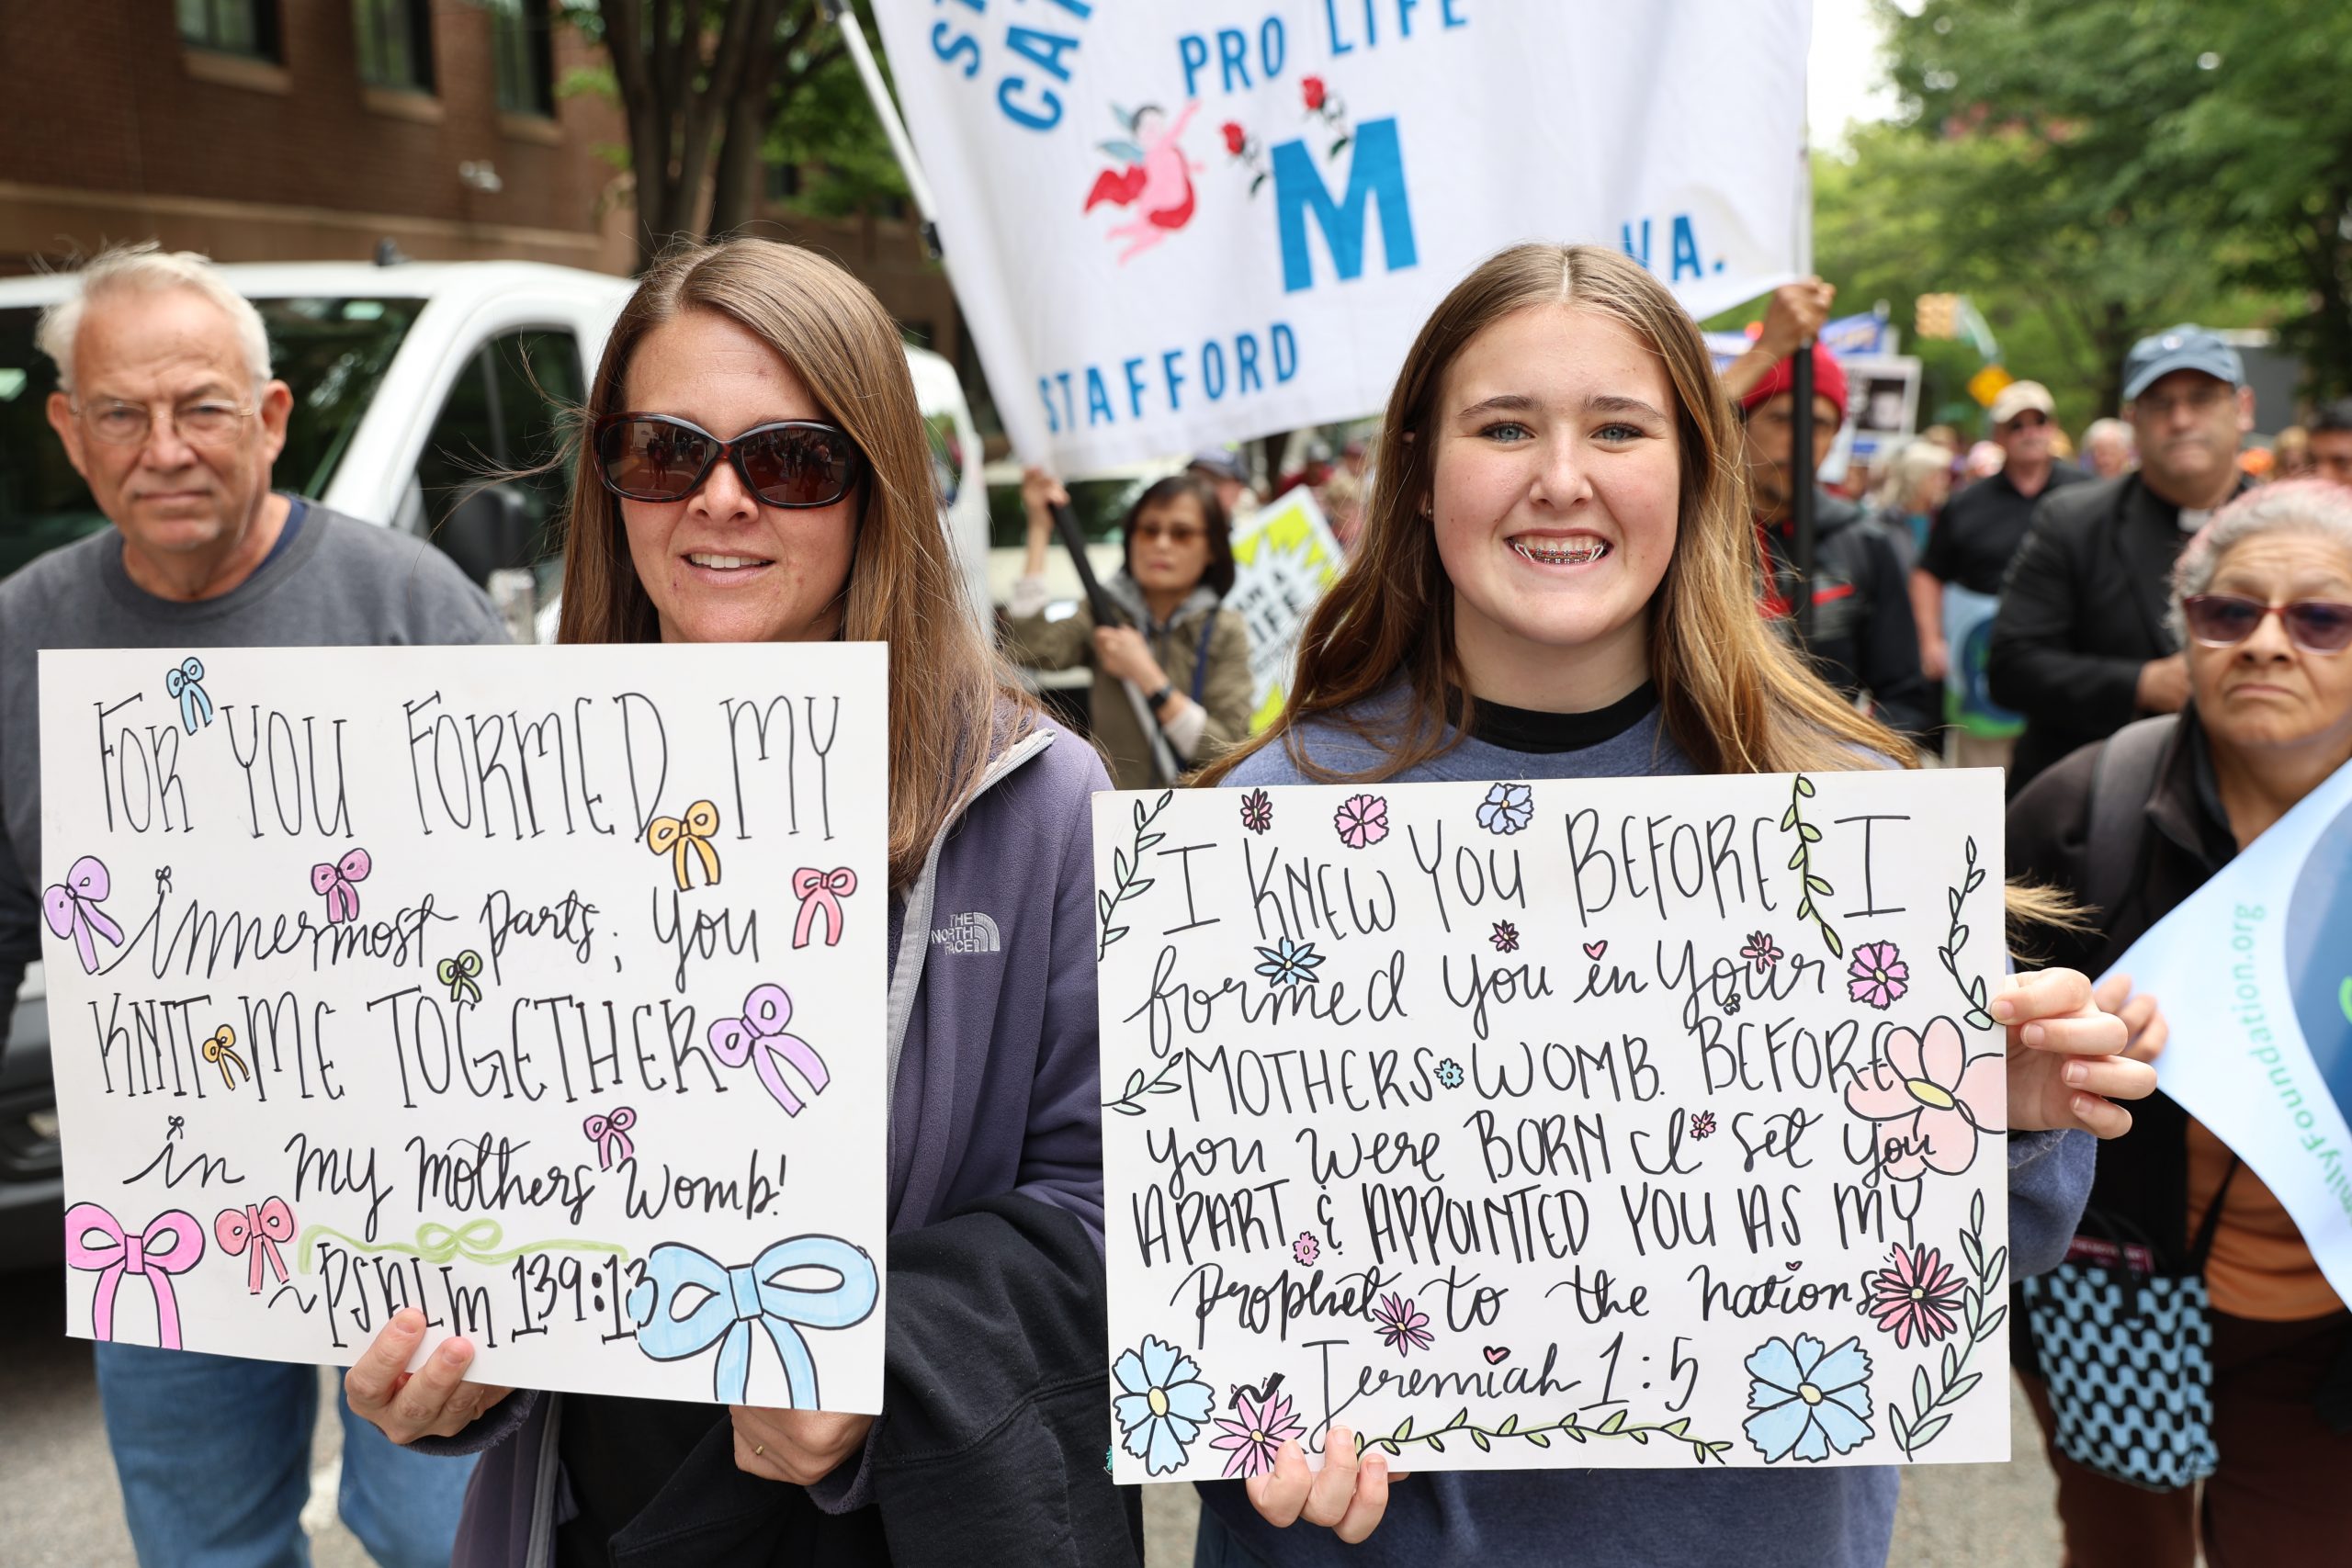 PRO LIFE
M
VA.
STAFFORD
FOR YOU FORMED MY
innermost parts; you
KNIT ME TOGETHER
in my mothers womb!
~PSALM 139:13
THE
NORTH
FACE
I KNEW YOU BEFORE I
formed you in your
MOTHERS WOMB. BEFORE
you were BORN I set you
APART & APPOINTED YOU AS MY
Prophet to the nations
Jeremiah 1:5
LIFE
ilyFoundation.org